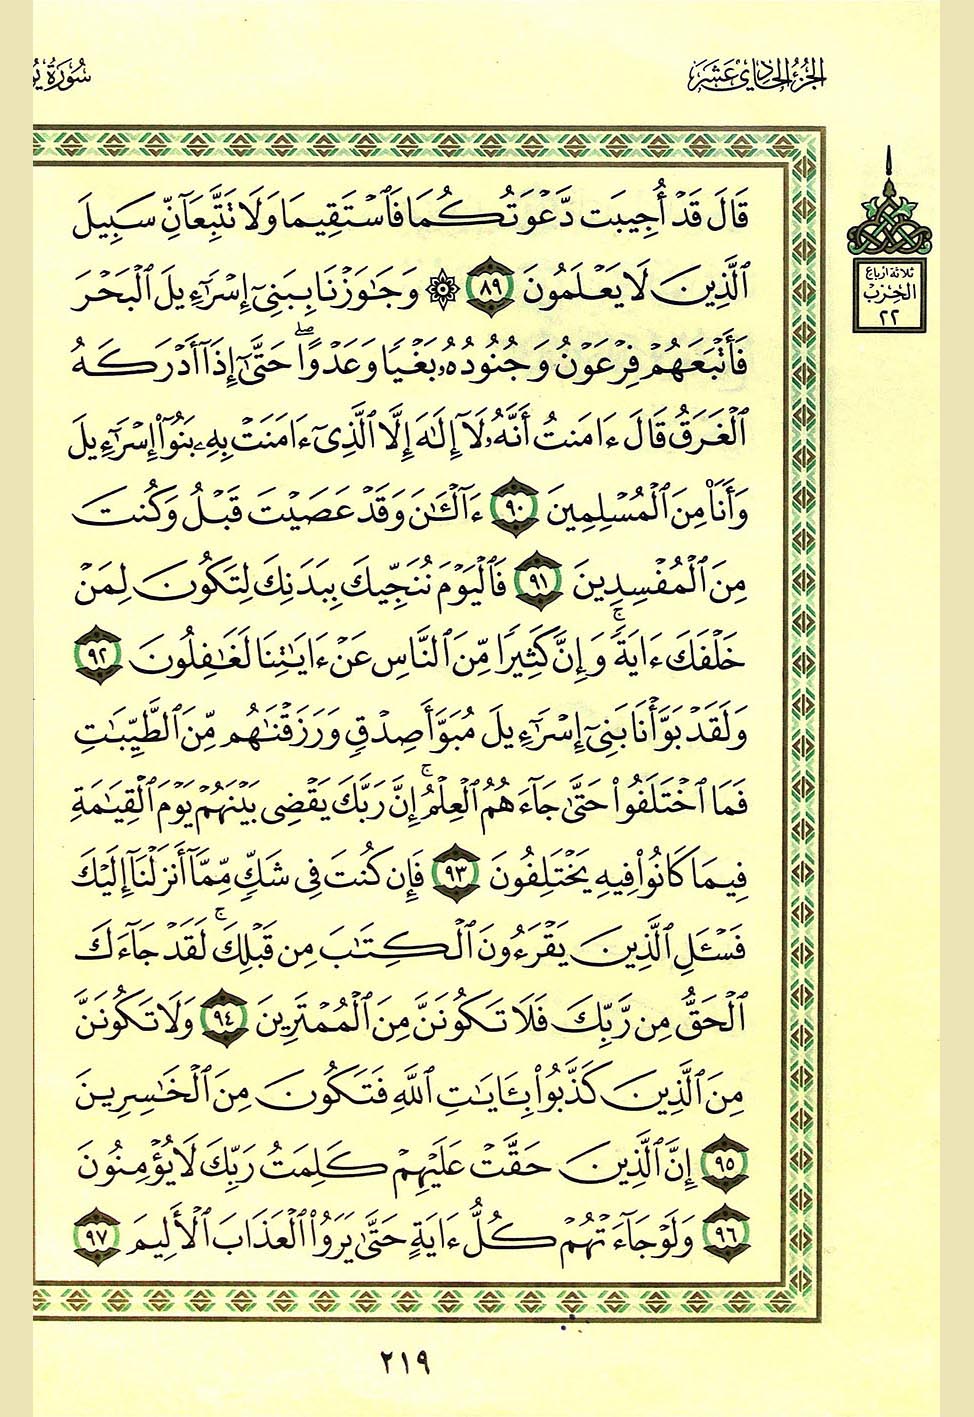 الجزء الحادي عشر
سورة
قَالَ قَدْ أُجِيبَت دَّعْوَتُكُمَا فَٱسْتَقِيمَا وَلَا تَتَّبِعَآنِّ سَبِيلَ
ٱلَّذِينَ لَا يَعْلَمُونَ ٨٩ ۞ وَجَٰوَزْنَا بِبَنِىٓ إِسْرَٰٓءِيلَ ٱلْبَحْرَ
ثلاثة أرباع
الحزب
٢٢
فَأَتْبَعَهُمْ فِرْعَوْنُ وَجُنُودُهُۥ بَغْيًا وَعَدْوًا ۖ حَتَّىٰٓ إِذَآ أَدْرَكَهُ
ٱلْغَرَقُ قَالَ ءَامَنتُ أَنَّهُۥ لَآ إِلَٰهَ إِلَّا ٱلَّذِىٓ ءَامَنَتْ بِهِۦ بَنُوٓا۟ إِسْرَٰٓءِيلَ
وَأَنَا۠ مِنَ ٱلْمُسْلِمِينَ ٩٠ ءَآلْـَٰٔنَ وَقَدْ عَصَيْتَ قَبْلُ وَكُنتَ
مِنَ ٱلْمُفْسِدِينَ ٩١ فَٱلْيَوْمَ نُنَجِّيكَ بِبَدَنِكَ لِتَكُونَ لِمَنْ
خَلْفَكَ ءَايَةً ۚ وَإِنَّ كَثِيرًا مِّنَ ٱلنَّاسِ عَنْ ءَايَٰتِنَا لَغَٰفِلُونَ ٩٢
وَلَقَدْ بَوَّأْنَا بَنِىٓ إِسْرَٰٓءِيلَ مُبَوَّأَ صِدْقٍ وَرَزَقْنَٰهُم مِّنَ ٱلطَّيِّبَٰتِ
فَمَا ٱخْتَلَفُوا۟ حَتَّىٰ جَآءَهُمُ ٱلْعِلْمُ ۚ إِنَّ رَبَّكَ يَقْضِى بَيْنَهُمْ يَوْمَ ٱلْقِيَٰمَةِ
فِيمَا كَانُوا۟ فِيهِ يَخْتَلِفُونَ ٩٣ فَإِن كُنتَ فِى شَكٍّ مِّمَّآ أَنزَلْنَآ إِلَيْكَ
فَسْـَٔلِ ٱلَّذِينَ يَقْرَءُونَ ٱلْكِتَٰبَ مِن قَبْلِكَ ۚ لَقَدْ جَآءَكَ
ٱلْحَقُّ مِن رَّبِّكَ فَلَا تَكُونَنَّ مِنَ ٱلْمُمْتَرِينَ ٩٤ وَلَا تَكُونَنَّ
مِنَ ٱلَّذِينَ كَذَّبُوا۟ بِـَٔايَٰتِ ٱللَّهِ فَتَكُونَ مِنَ ٱلْخَٰسِرِينَ
٩٥ إِنَّ ٱلَّذِينَ حَقَّتْ عَلَيْهِمْ كَلِمَتُ رَبِّكَ لَا يُؤْمِنُونَ
٩٦ وَلَوْ جَآءَتْهُمْ كُلُّ ءَايَةٍ حَتَّىٰ يَرَوُا۟ ٱلْعَذَابَ ٱلْأَلِيمَ ٩٧
٢١٩